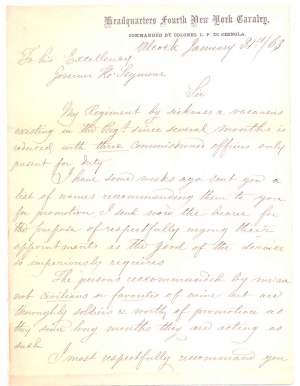 Headquarters Fourth New York Cavalry,
COMMANDED BY COLONEL L. P. DI CESNOLA.
January 31st/63
To his Excellency
Governor Ho. Seymour
Sir
My Regiment by sickness & vacancies
existing in the Reg. since several months is
reduced with three commissioned officers only
present for duty.
I have some weeks ago sent you a
list of names recommending them to you
for promotion, I send now the bearer for
the purpose of respectfully urging their
appointments as the good of the service
so imperiously requires
The persons recommended by me are
not civilians or favorites of mine but are
thoroughly soldiers & worth of promotion as
they since long months they are acting as
such.
I most respectfully recommend you